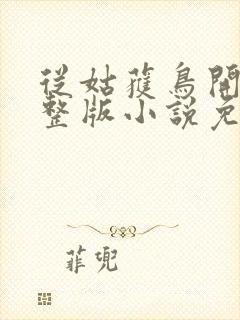 從姑獲鳥開
整版小說免
菲兜